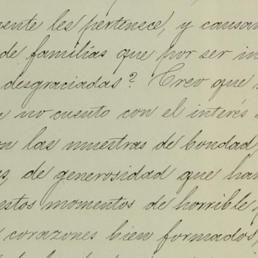 ente les pertenece, y causan
de familias que por ser in
desgraciadas? Creo que
no cuento con el interés
en las muestras de bondad,
y de generosidad que han
estos momentos de horrible
corazones bien formados,